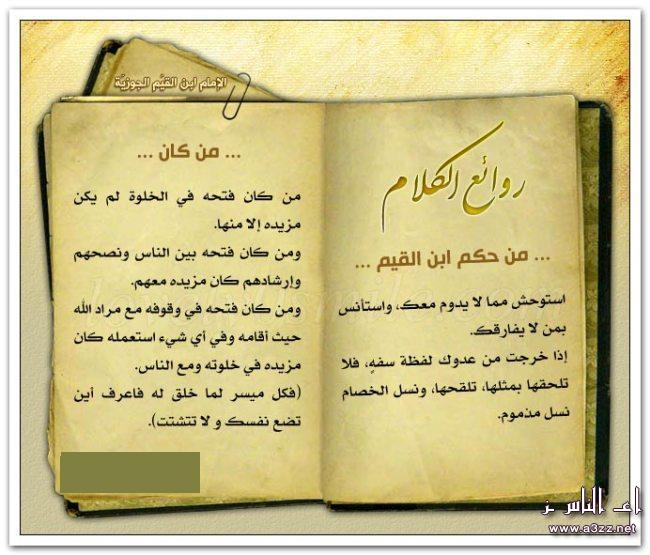 الإمام ابن القيّم الجوزيّة
روائع الكلام
... من حكم ابن القيم ...
استوحش مما لا يدوم معك، واستأنس
بمن لا يفارقك.
إذا خرجت من عدوك لفظة سفهٍ، فلا
تلحقها بمثلها، تلقحها، ونسل الخصام
نسل مذموم.
... من كان ...
من كان فتحه في الخلوة لم يكن
مزيده إلا منها.
ومن كان فتحه بين الناس ونصحهم
وإرشادهم كان مزيده معهم.
ومن كان فتحه في وقوفه مع مراد الله
حيث أقامه وفي أي شيء استعمله كان
مزيده في خلوته ومع الناس.
(فكل ميسر لما خلق له فاعرف أين
تضع نفسك و لا تتشتت).
الناس
www.a3zz.net